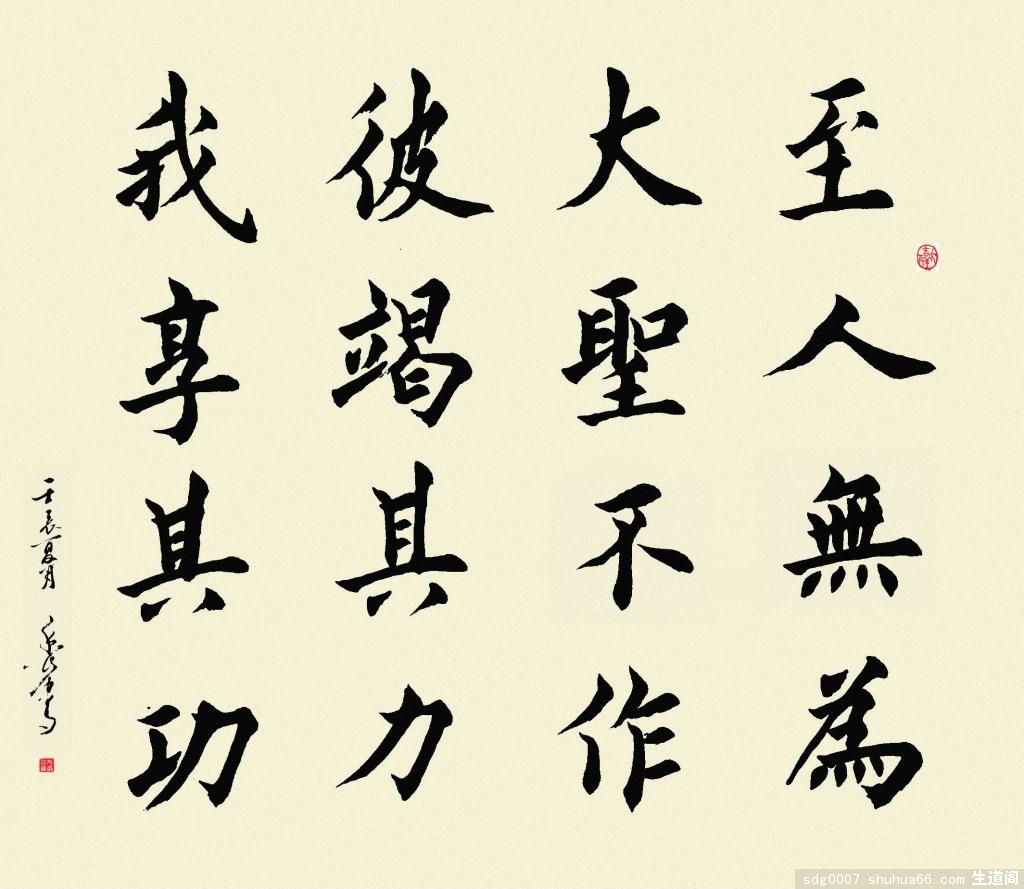 至人無為
大聖不作
彼竭其力
我享其功
壬辰夏月
sdg0007.shuhua66.com 生道阁